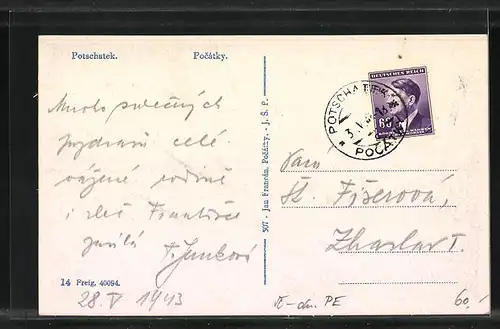 Potschatek. Počátky.
Mnoho srdečných
pozdravů celé
vážené rodině
i slec Františce
zasílá
F. Janková
14 Freig. 40094.
28. V 1943
507 - Jan Francda, Počátky. - J. S. P.
DEUTSCHES REICH
60
POTSCHATEK
POČÁTKY
Paní
Fišerová,
Žharlav I.
PE
60,-